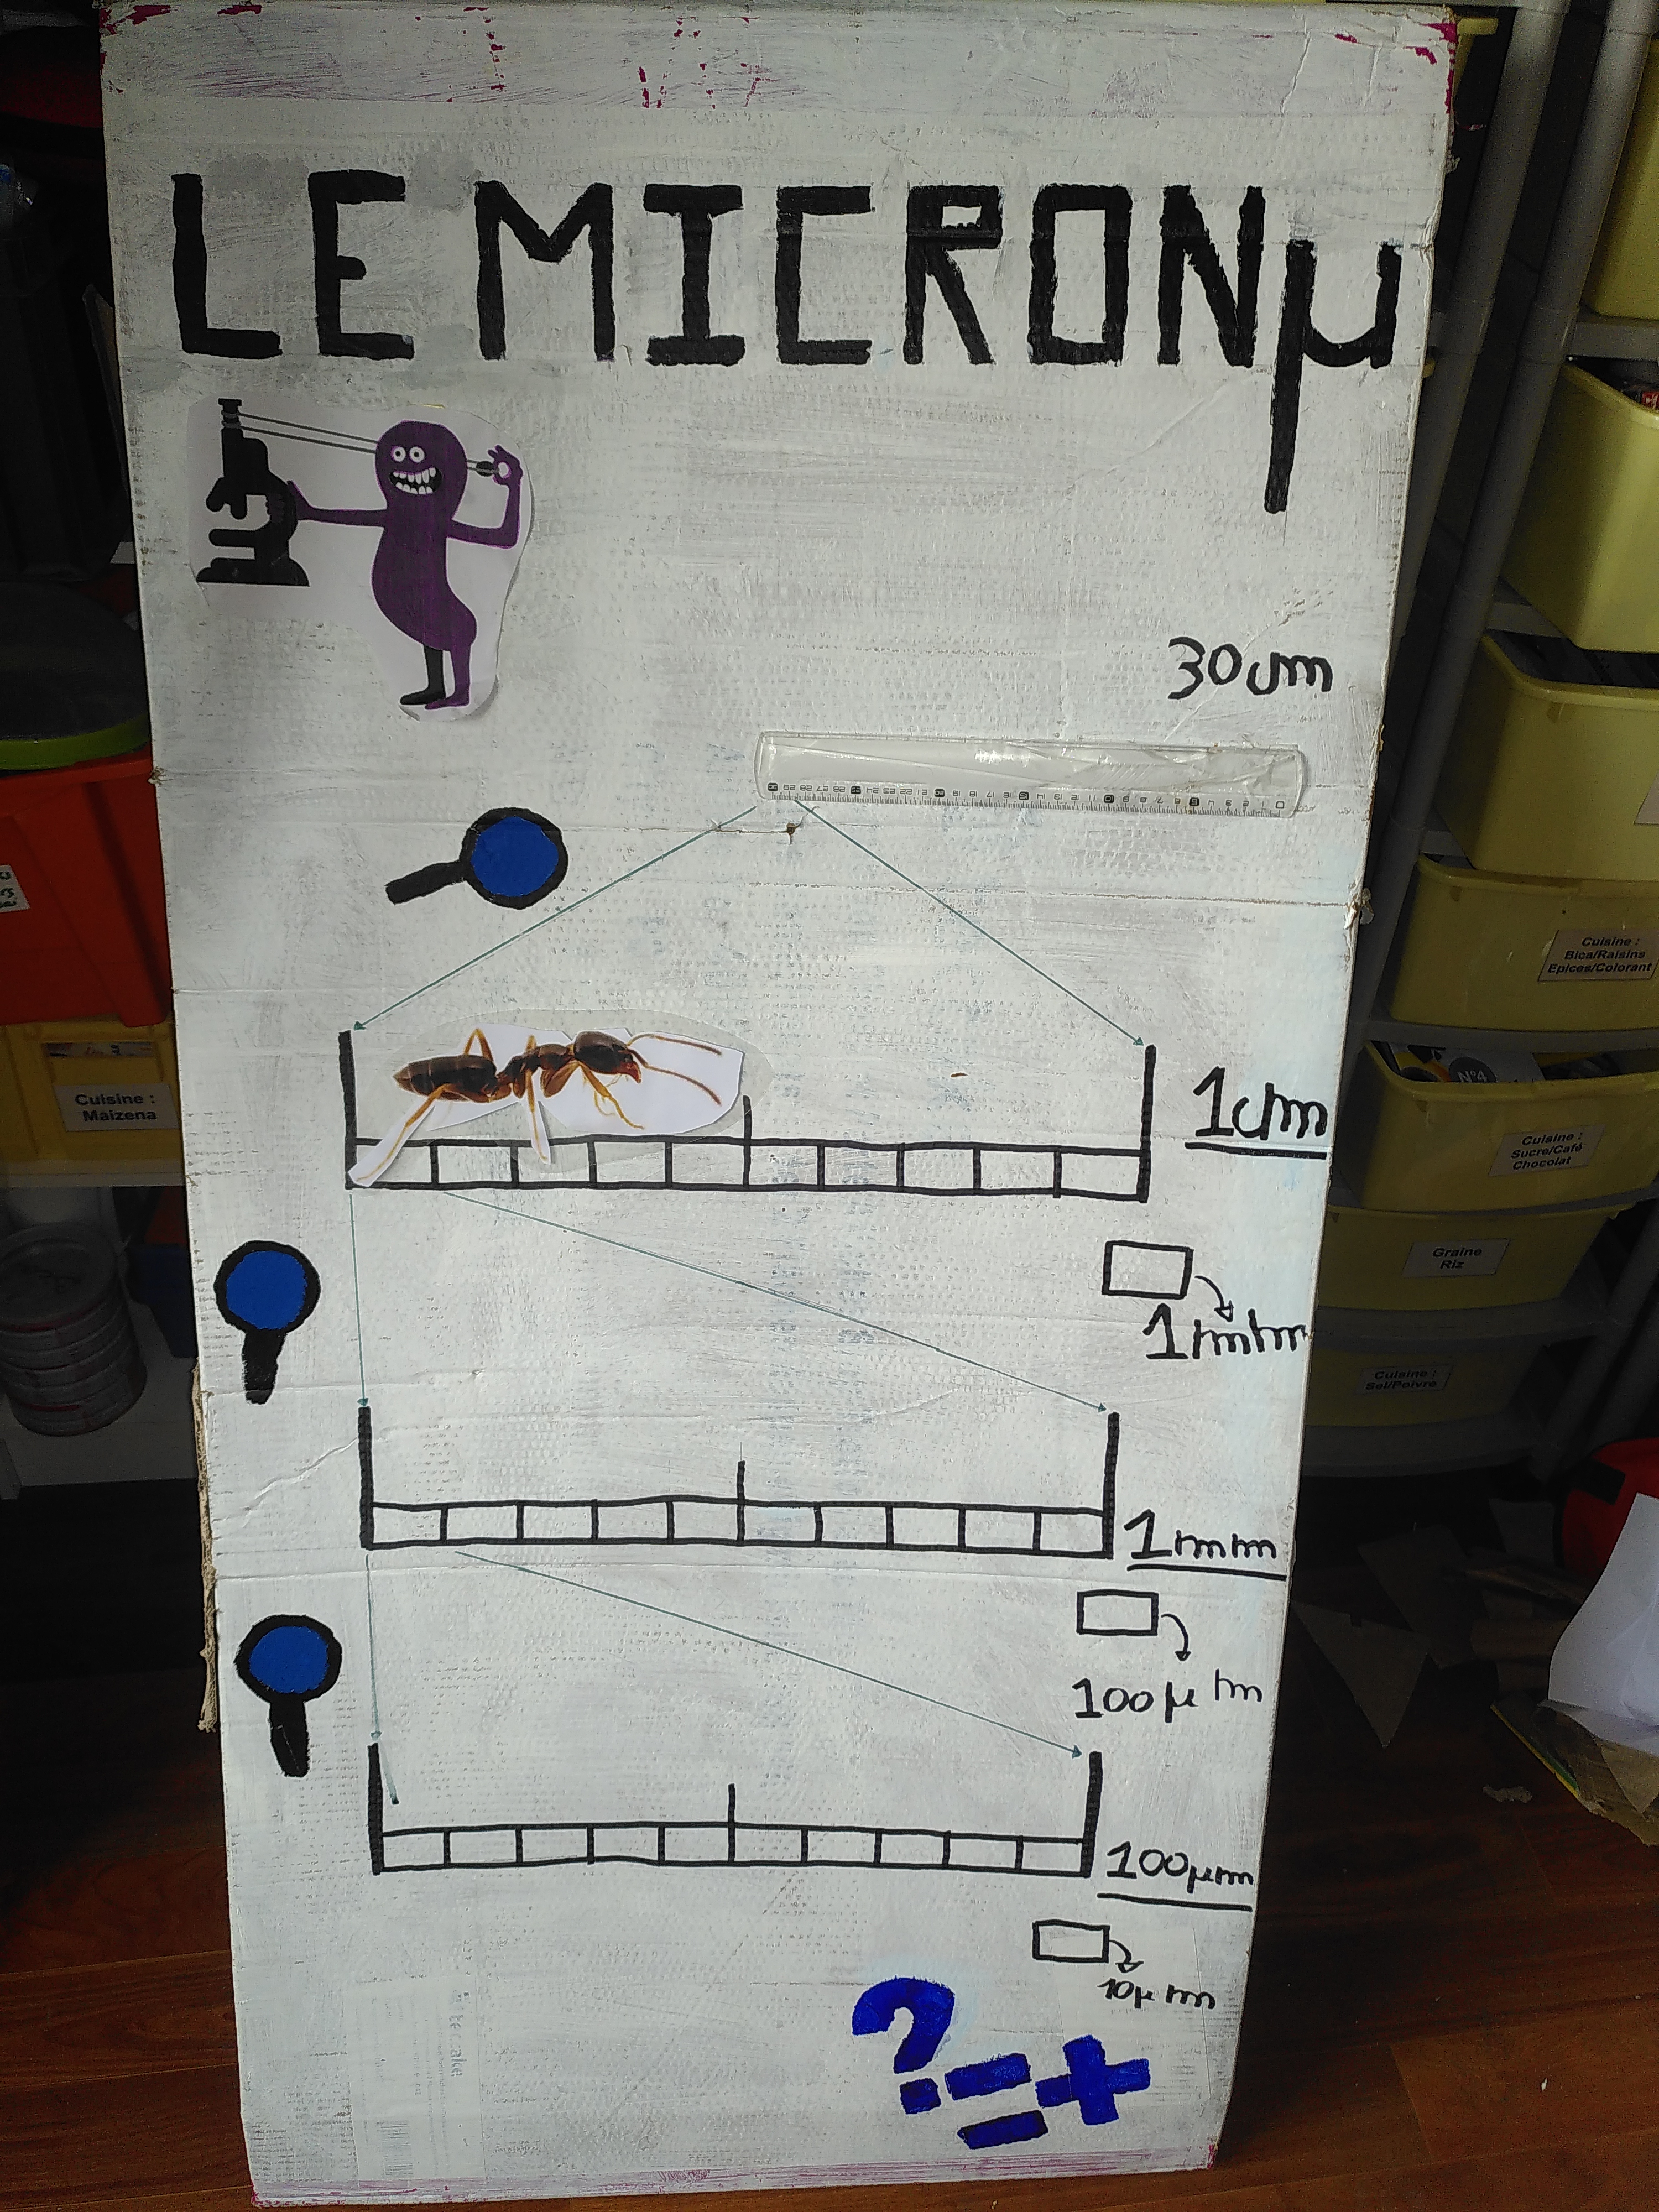 LE MICRON µ
30cm
1cm
1mm
1mm
100µm
100µm
10µm
?=+
Cuisine :
Maizena
Cuisine :
Bica/Raisins
Epices/Colorant
N°4
Cuisine :
Sucre/Café
Chocolat
Graine
Riz
Cuisine :
Sel/Poivre